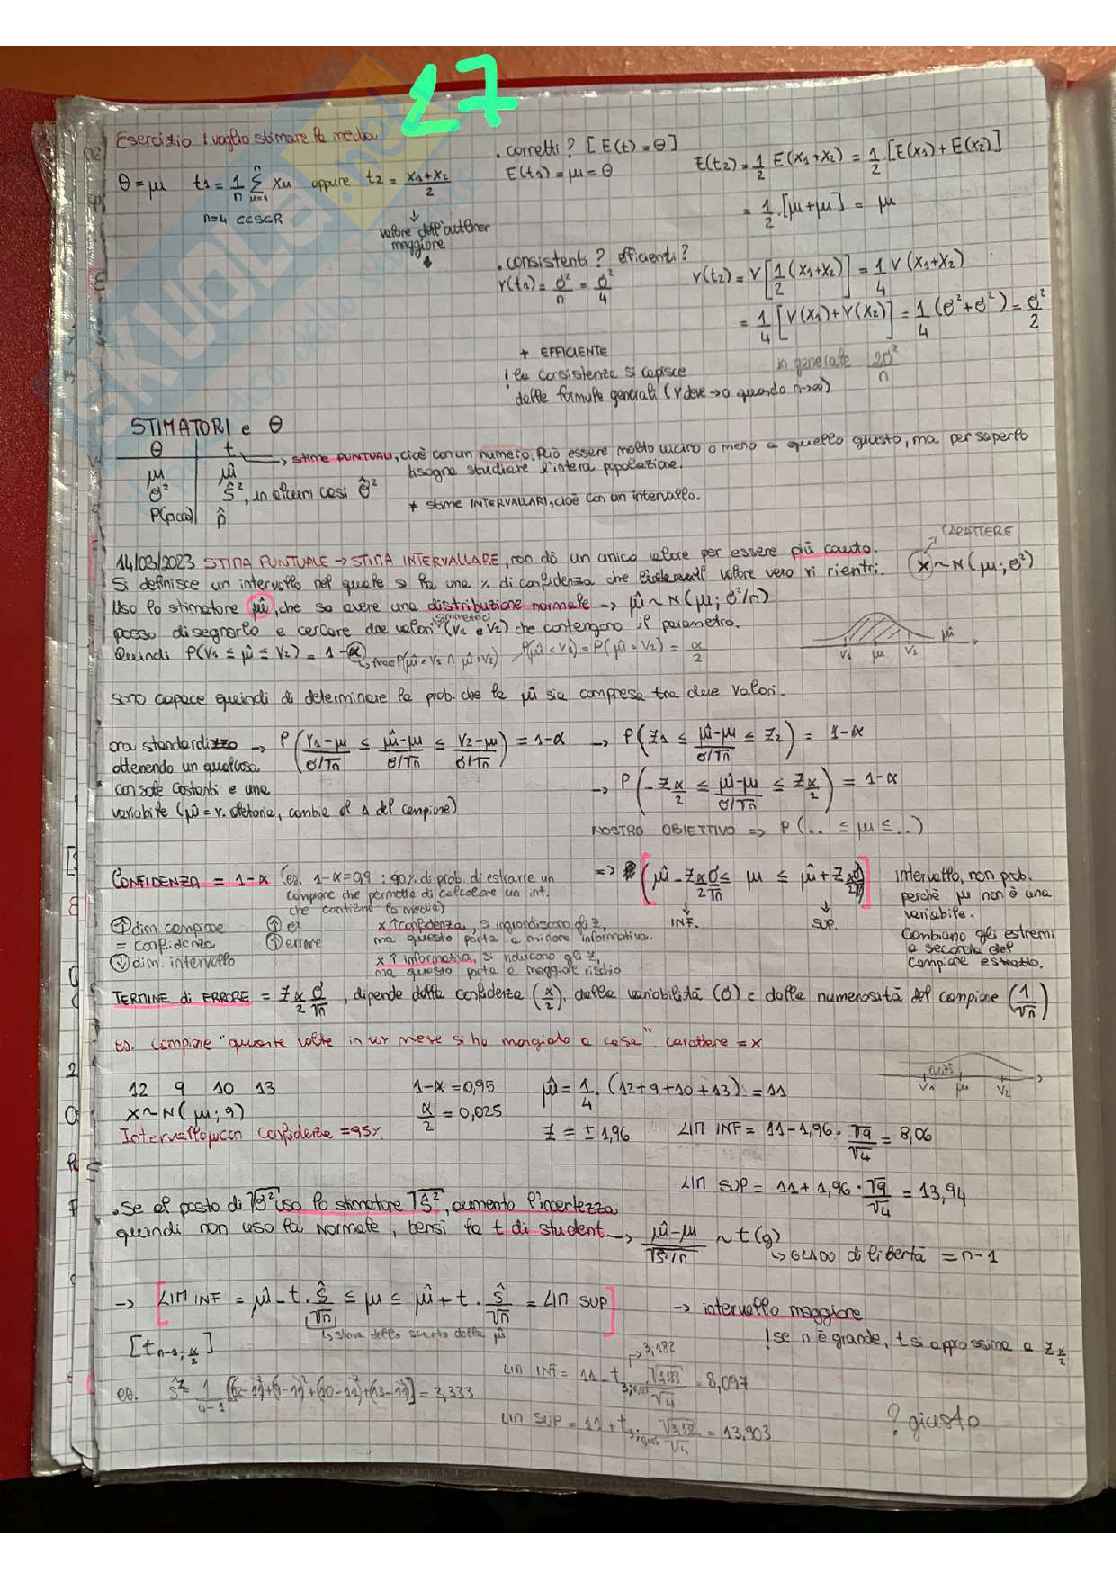 27
Esercizio 1 voglio stimare la media
θ = μ t1 = 1/n Σ xu oppure t2 = x1+x2/2
n=4 CCSCR
valore dell'outlier maggiore
. corretti? [E(t) = θ]
E(t1) = μ = θ
E(t2) = 1/2 E(x1+x2) = 1/2 [E(x1) + E(x2)]
= 1/2 · [μ+μ] = μ
. consistenti? efficienti?
V(t1) = σ²/n = σ²/4
V(t2) = V[1/2 (x1+x2)] = 1/4 V(x1+x2)
= 1/4 [V(x1)+V(x2)] = 1/4 (σ²+σ²) = σ²/2
+ EFFICIENTE
in generale 2σ²/n
! la consistenza si capisce
dalle formule generali (V deve →0 quando n→∞)
STIMATORI e θ
θ t
→ STIME PUNTUALI, cioè con un numero. Può essere molto vicino o meno a quello giusto, ma per saperlo
bisogna studiare l'intera popolazione.
μ μ̂
σ² ŝ², in alcuni casi σ̂²
p̂
* stime INTERVALLARI, cioè con un intervallo.
14/03/2023 STIMA PUNTUALE → STIMA INTERVALLARE, non dò un unico valore per essere più cauto.
CARATTERE
Si definisce un intervallo nel quale si ha una % di confidenza che il valore vero vi rientri.
x ~ N(μ; σ²)
Uso lo stimatore μ̂, che so avere una distribuzione normale → μ̂ ~ N(μ; σ²/n)
posso disegnarlo e cercare due valori (V1 e V2) che contengono il parametro.
V1 μ V2 μ̂
Quindi P(V1 ≤ μ̂ ≤ V2) = 1-α P(μ̂ < V1) = P(μ̂ > V2) = α/2
sono capace quindi di determinare la prob. che la μ̂ sia compresa tra due valori.
ora standardizzo → P(V1-μ/σ/√n ≤ μ̂-μ/σ/√n ≤ V2-μ/σ/√n) = 1-α → P(Z1 ≤ μ̂-μ/σ/√n ≤ Z2) = 1-α
ottenendo un qualcosa
con sole costanti e una
variabile (μ̂ = v. aleatoria, cambia al Δ del campione)
→ P(-Zα/2 ≤ μ̂-μ/σ/√n ≤ Zα/2) = 1-α
NOSTRO OBIETTIVO => P(.. ≤ μ ≤ ..)
CONFIDENZA = 1-α (es. 1-α=0,9: 90% di prob. di estrarre un
campione che permette di calcolare un int.
che contiene la media)
=> [μ̂ - Zα/2 σ/√n ≤ μ ≤ μ̂ + Zα/2 σ/√n]
INF. SUP.
intervallo, non prob.
perchè μ non è una
variabile.
Cambiano gli estremi
a seconda del
campione estratto.
↑ dim. campione
= confidenza
↓ dim. intervallo
↑ errore
x ↑ confidenza, si ingrandiscono gli z,
ma questo porta a minore informativa.
x ↑ informativa, si riducono gli z,
ma questo porta a maggiore rischio
TERMINE di ERRORE = Zα/2 σ/√n, dipende dalla confidenza (α/2), dalla variabilità (σ) e dalla numerosità del campione (1/√n)
Es. campione "quante volte in un mese si ha mangiato a casa" carattere = x
12 9 10 13
x ~ N(μ; 9)
Intervallo μ con confidenza = 95%
1-α = 0,95
α/2 = 0,025
μ̂ = 1/4 · (12+9+10+13) = 11
z = ± 1,96
LIM INF = 11 - 1,96 · √9/√4 = 8,06
LIM SUP = 11 + 1,96 · √9/√4 = 13,94
0,025
V1 μ V2
. Se al posto di √σ² uso lo stimatore √ŝ², aumento l'incertezza
quindi non uso la Normale, bensì la t di student → μ̂-μ/√ŝ²/n ~ t(g)
↳ GRADO di libertà = n-1
→ [LIM INF = μ̂ - t · ŝ/√n ≤ μ ≤ μ̂ + t · ŝ/√n = LIM SUP]
↳ stima dello scarto della μ̂
[t n-1; α/2]
→ intervallo maggiore
! se n è grande, t si approssima a Zα/2
es. ŝ² = 1/4-1 [(12-11)²+(9-11)²+(10-11)²+(13-11)²] = 3,333
3,182
LIM INF = 11 - t 3;0,025 √3,33/√4 = 8,097
LIM SUP = 11 + t 3;0,025 √3,33/√4 = 13,903
? giusto